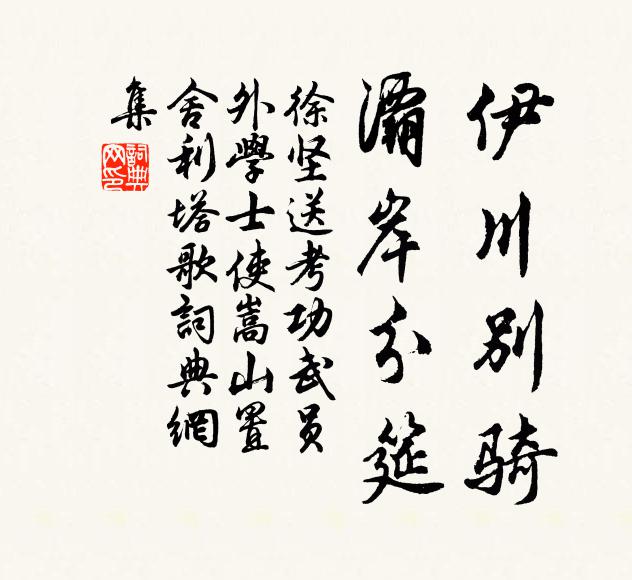 伊川别骑
灞岸分筵
徐坚送考功武员
外學士使嵩山置
舍利塔歌詞典網
集
詞典网印